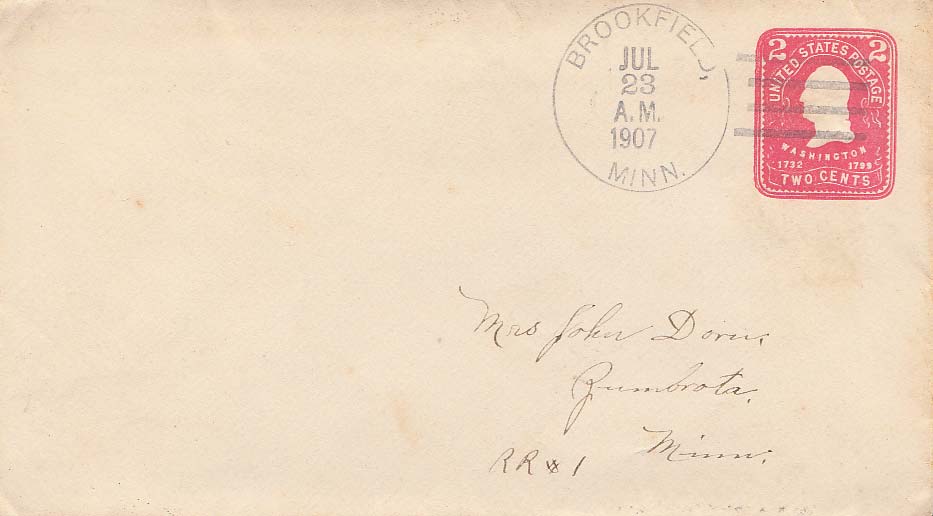 BROOKFIELD,
JUL
23
A.M.
1907
MINN.
2 2
UNITED STATES POSTAGE
WASHINGTON
1732 1799
TWO CENTS
Mrs John
Zumbrota.
Minn.
RR # 1